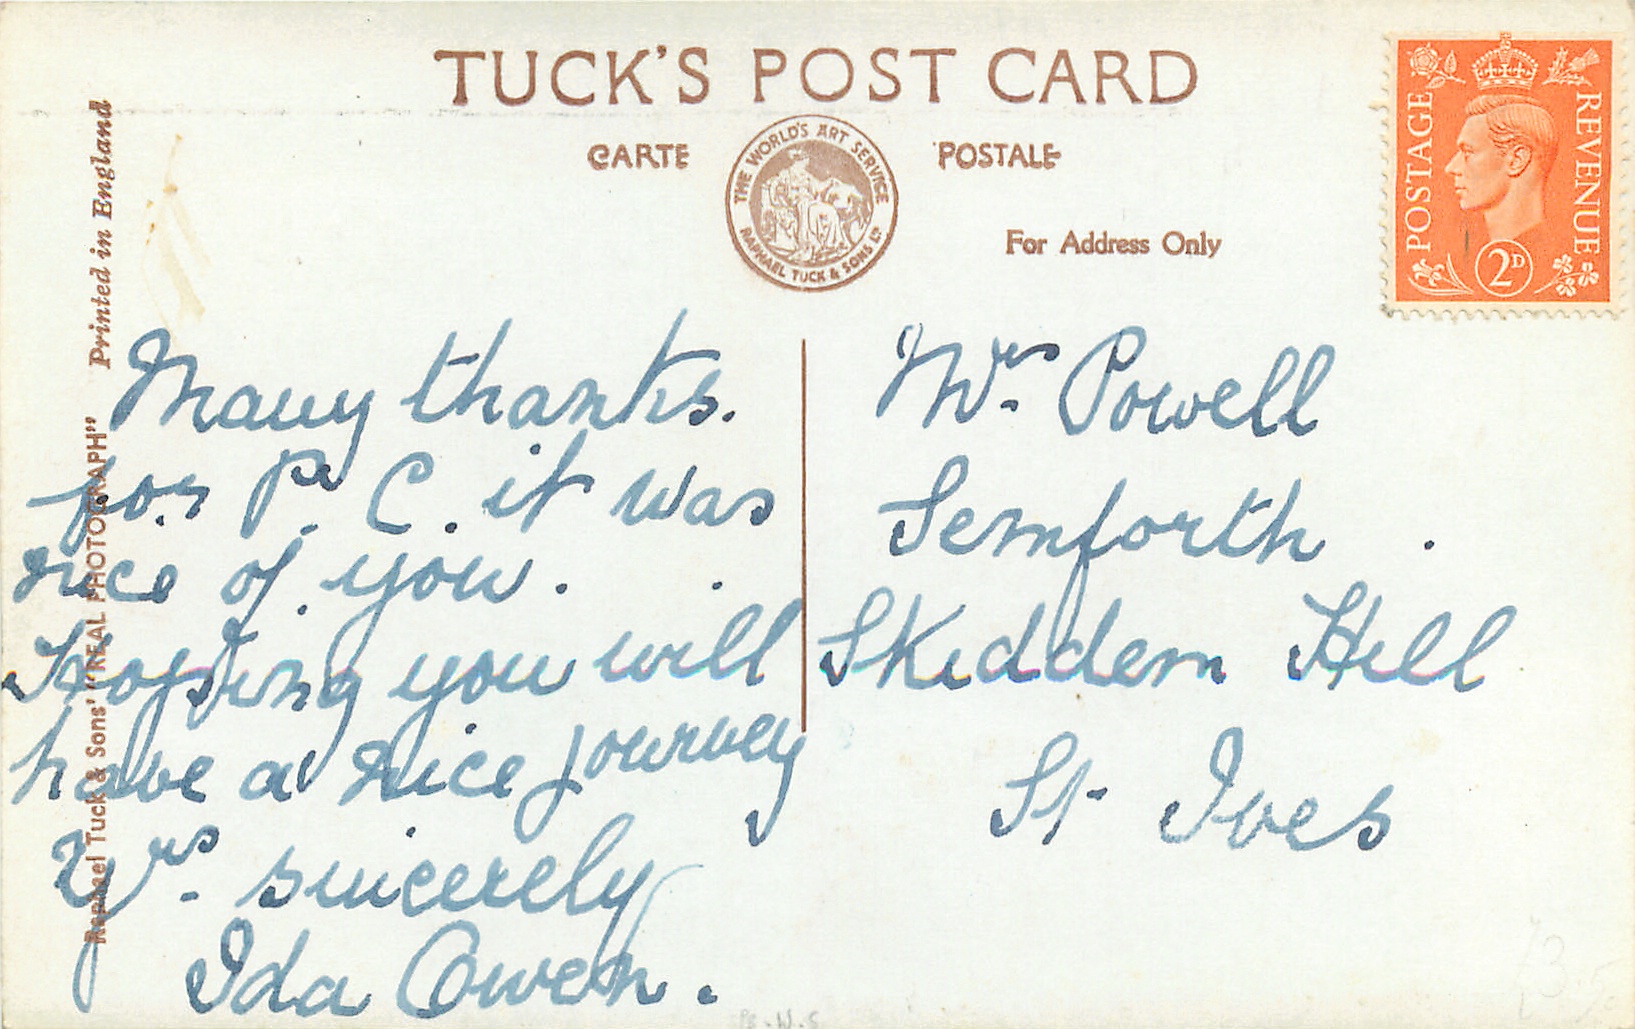 TUCK'S POST CARD
CARTE POSTALE
THE WORLD'S ART SERVICE
RAPHAEL TUCK & SONS LD
For Address Only
POSTAGE
REVENUE
2D
Raphael Tuck & Sons' "REAL PHOTOGRAPH" Printed in England
Many thanks.
for P. C. it was
nice of you.
Hopping you will
have a nice journey
Yrs. sincerely
Ida Owen.
Mrs. Powell
Semforth
Skiddem Hill
St Ives